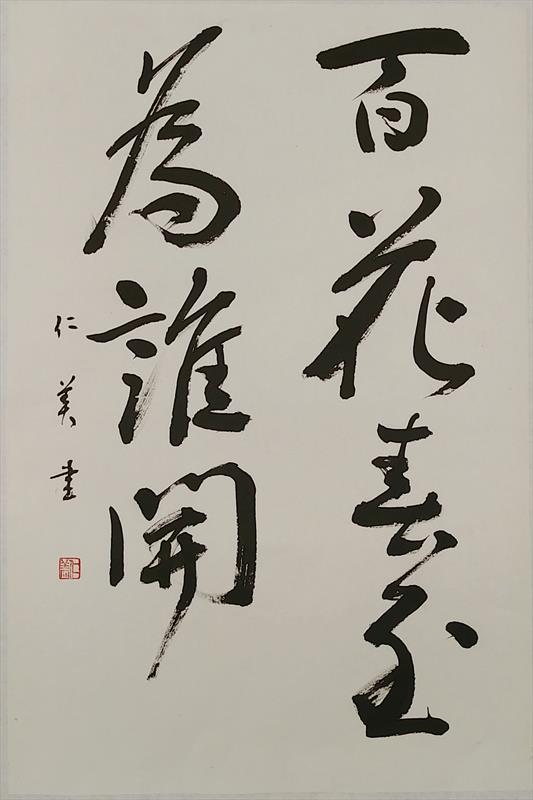 百花春至
為誰開
仁美書